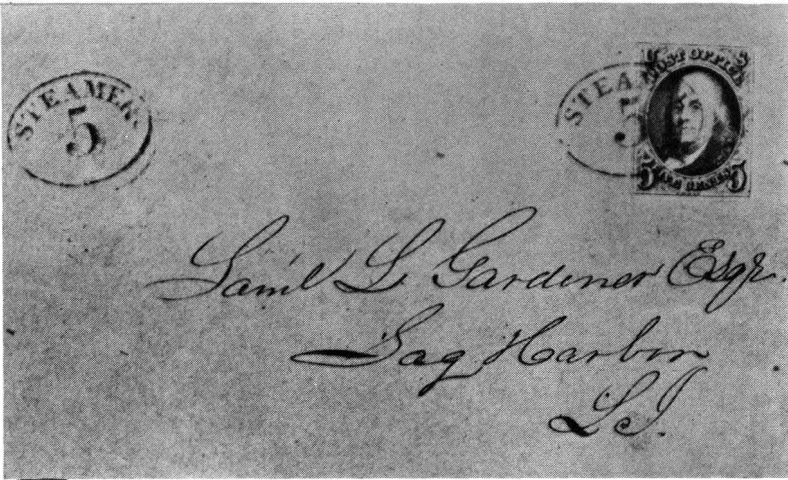 STEAMER
5
STEAM
5
POST OFFICE
5 FIVE CENTS 5
Saml L Gardiner Esqr.
Sag Harbor
L I.